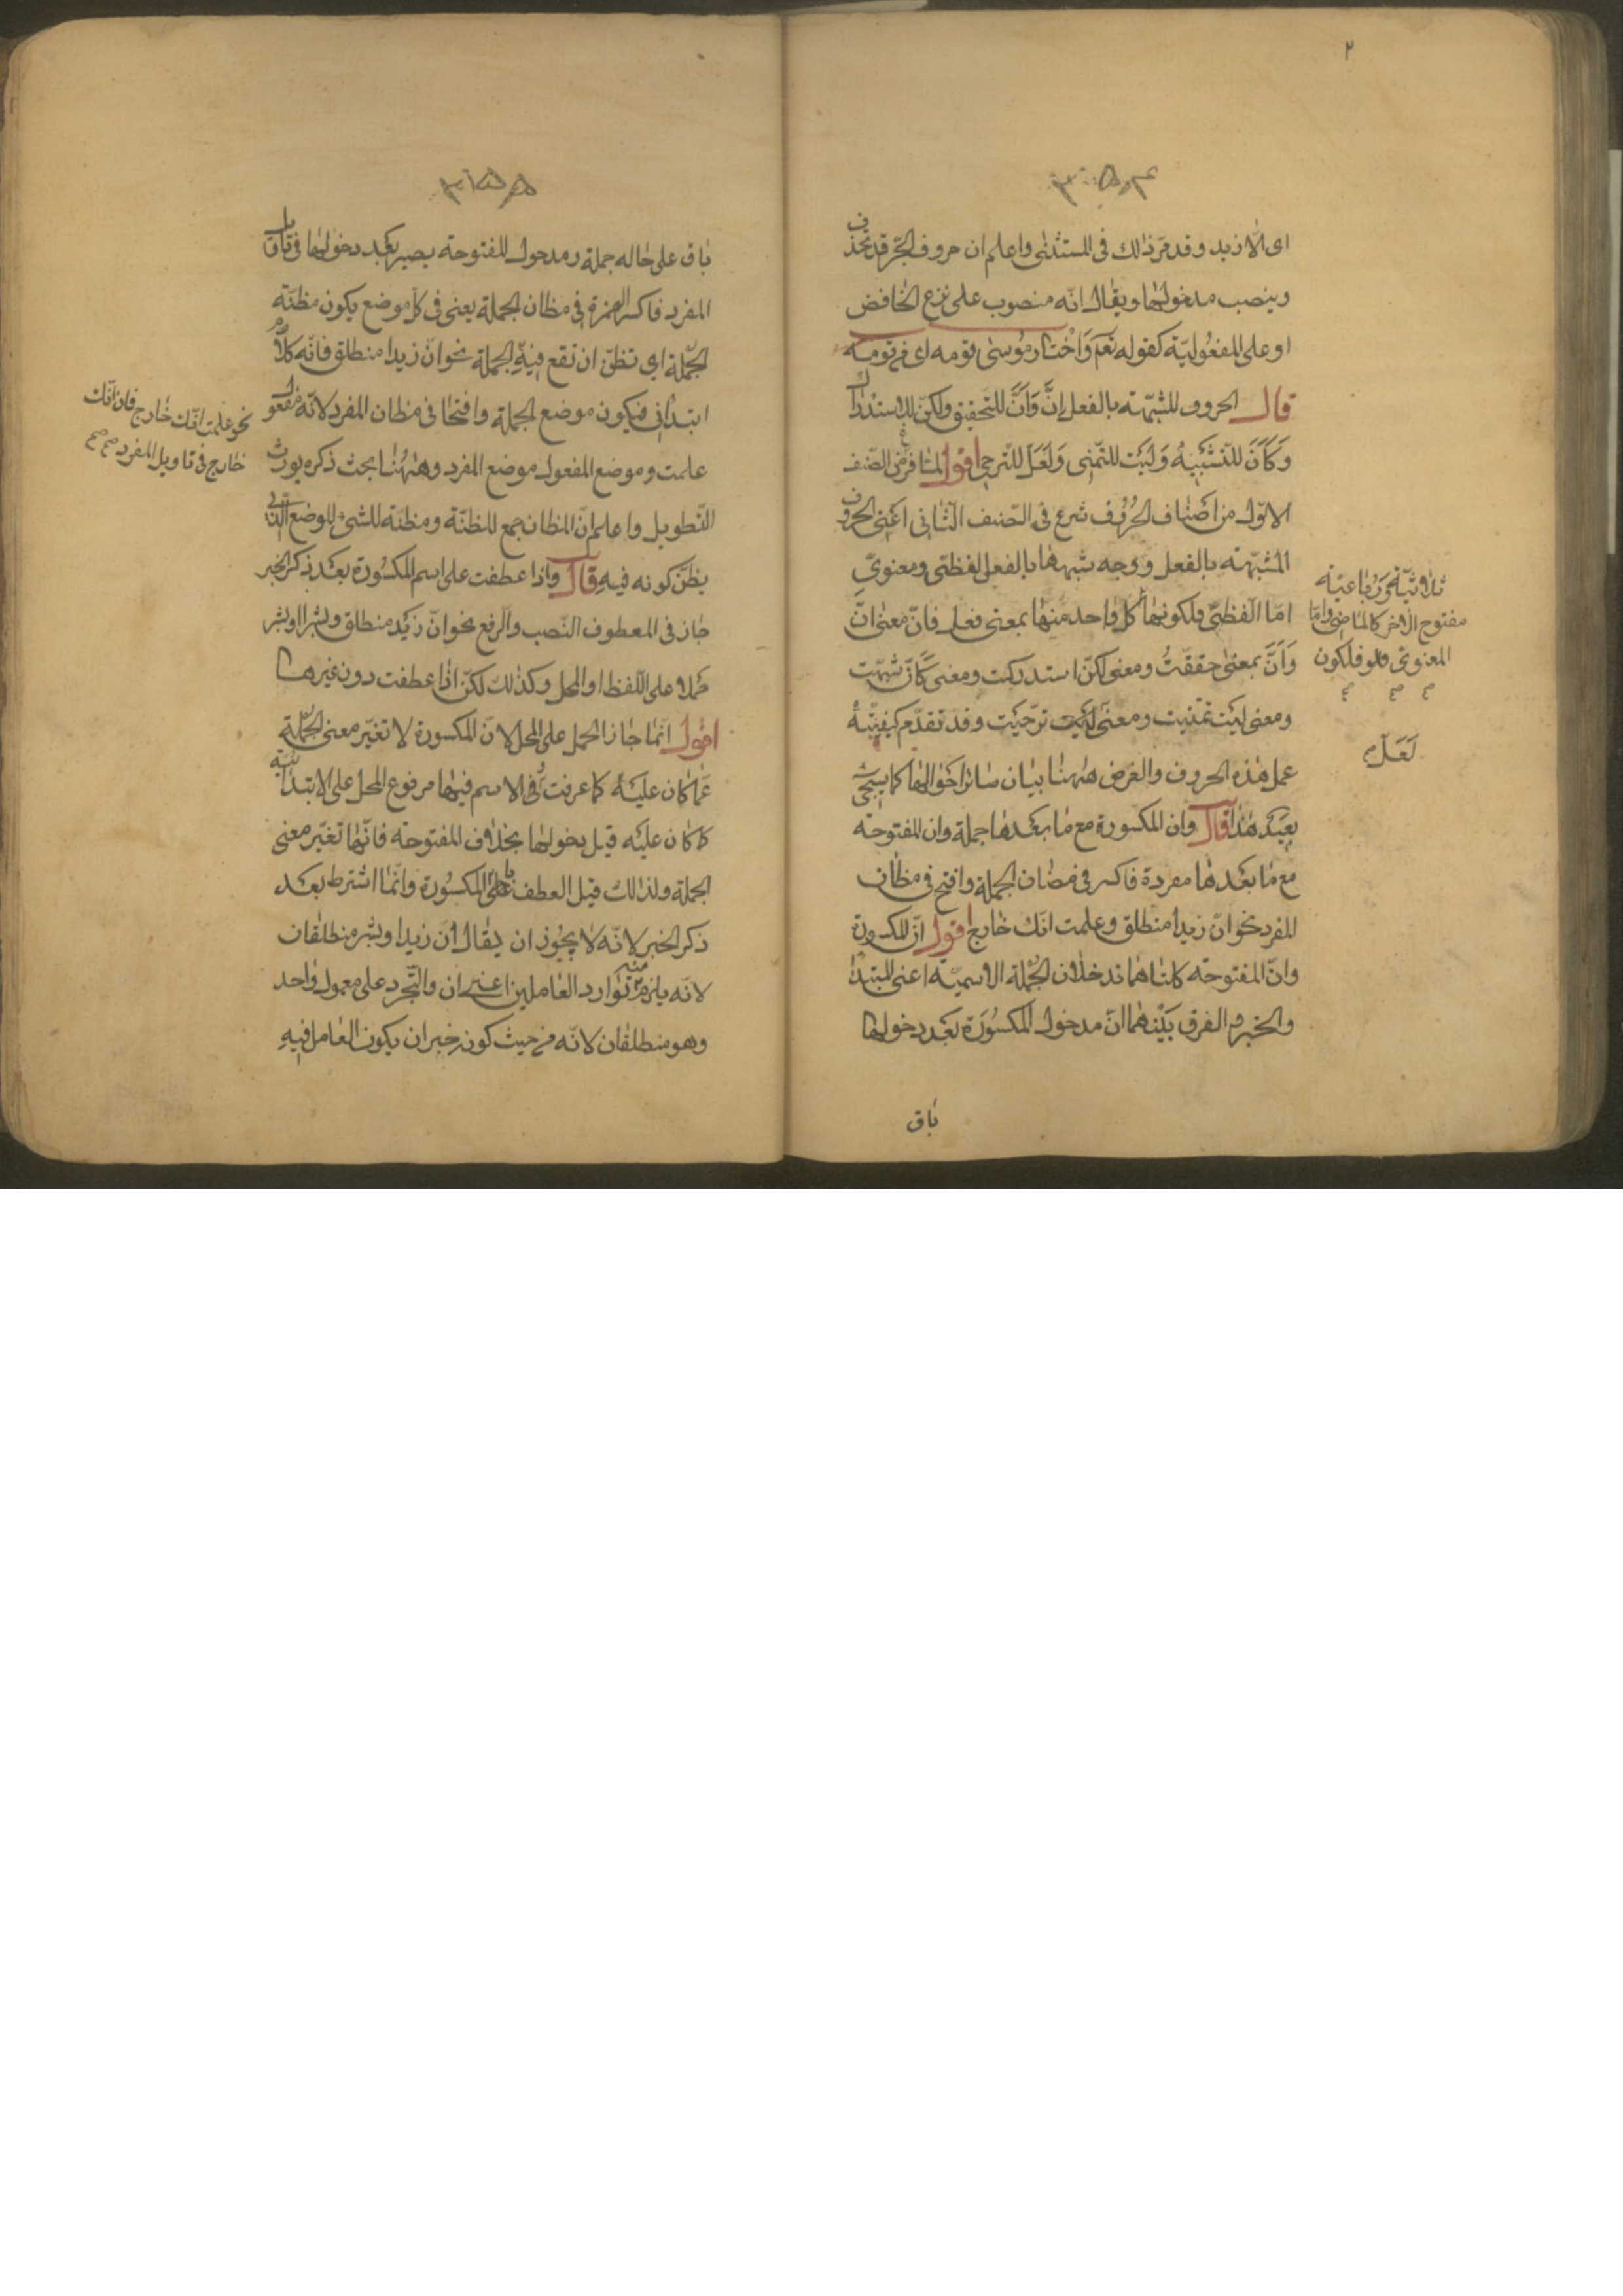 ٢
اى الّا زيد وقد مرّ ذالك فى المستثنٰى واعلم ان حروف الجّر قد تحذف
وينصب مدخولها ويقال انّه منصوب على نزع الخافض
او على المفعُوليّة كقوله تعَ وَاخْتارَ مُوسٰى قومه اى من قومه
قال الحروف المشبّهة بالفعل إنَّ وَاَنَّ للتحقيق ولكنّ للاستدراك
وَكَاَنَّ للتّشبيه وَلَيتَ للتمّنى وَلَعَلّ للتّرجى اقول لمّا فرغ من الصّنف
الاوّل من اصناف الحُرُوف شرع فى الصّنف الثّانى اعنى الحروف
المشبّهة بالفعل ووجه شبهها بالفعل لفظىّ ومعنوىّ
امّا الّفظىّ فلكونها كلّ واحد منها بمعنى فعل فانّ معنٰى انّ
وَاَنَّ بمعنى حققّتُ ومعنى لكنّ استدركت ومعنى كَاَنّ شبّهت
ومعنى ليت تمنّيت ومعنى ترجّيت وقد تقدّم كيفيّة
عمل هٰذه الحروف والغرض هٰهنا بيان سائر احوالها كما يجئ
بعيد هٰذا قال وان المكسورة مع ما بعدها جملة وان المفتوحة
مع ما بعدها مفردة فاكسر فى مضان الجملة وافتح فى مظان
المفرد نحو انّ زيدا منطلق وعلمت انّك خارج اقول انّ المكسورة
وانّ المفتوحة كلتاهما تدخلان الجُملة الاسميّة اعنى المبتدا
والخبر والفرق بينهما انّ مدخول المكسُورَة بَعد دخولها
باق
ثلاثيّة وَرُباعيّة
مفتوح الاٰخر كالماضى وامّا
المعنوىّ فلكون
لَعَلّ
باق على حاله جملة ومدخول المفتوحة يصير بعد دخولها فى تاويل
المفرد فاكسر الهمزة فى مظان الجملة يعنى فى كلّ موضع يكون مظنّة
الجّملة اى تظنّ ان تقع فيه الجملة نحو انّ زيدا منطلق فانّه كلام
ابتدائى فيكون موضع الجملة وافتحها فى مظان المفرد لانّه مفعول
علمت وموضع المفعول موضع المفرد وهٰهُنٰا بحث ذكره يورث
التّطويل واعلم انّ المظان جمع المظنّة ومظنّة الشئ الموضع الّذى
يظنّ كونه فيه قال واذا عطفت على اسم المكسُورة بعد ذكر الخبر
جاز فى المعطوف النّصب والرفع نحو انّ زيدا منطلق وبشرا او بشر
حملا على اللّفظ او المحل وكذٰلك لكنّ اذا عطفت دون غيرها
اقول انّما جاز الحمل على المحل لانّ المكسورة لا تغيّر معنى الجملة
عمّا كان عليه كما عرفت فالاسم فيها مرفوع المحل على الابتدائيّة
كما كان عليه قبل دخولها بخلاف المفتوحة فانّها تغيّر معنى
الجملة ولذالك قيل العطف على المكسُورة وانّما اشترط بعد
ذكر الخبر لانّه لا يجُوز ان يقال انّ زيدا وبشر منطلقان
لانّه يلزم منه توارد العاملين اعنى ان والتّجرد على معمول واحد
وهو منطلقان لانّه من حيث كون خبر ان يكون العامل فيه
نحو علمت انّك خارج فان انّك
خارج فى تاويل المفرد